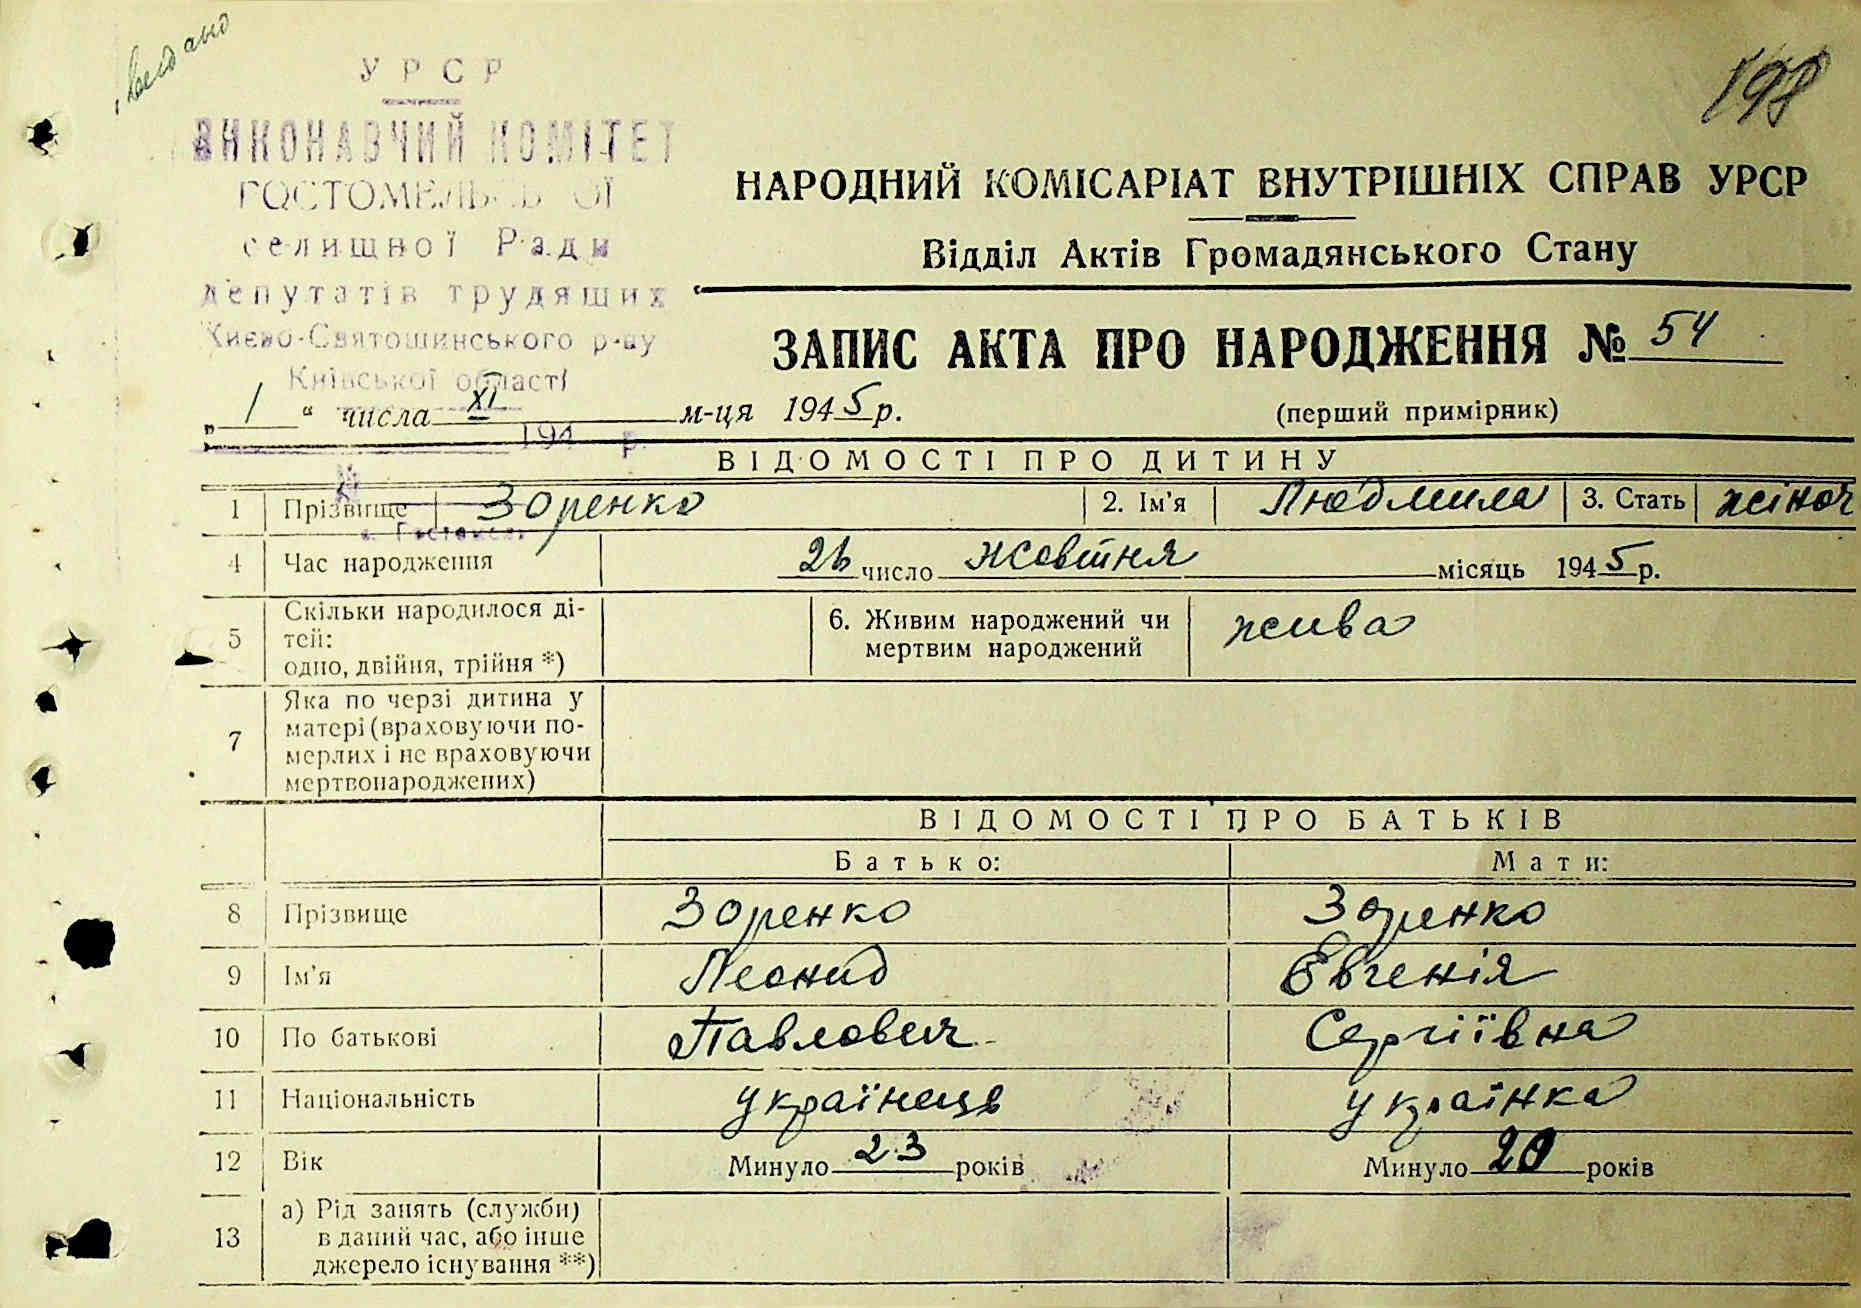 видано
198
УРСР
ВИКОНАВЧИЙ КОМІТЕТ
ГОСТОМЕЛЬСЬКОЇ
селищної Ради
депутатів трудящих
Києво-Святошинського р-ну
Київської області
194 р.
с. Гостомель
НАРОДНИЙ КОМІСАРІАТ ВНУТРІШНІХ СПРАВ УРСР
Відділ Актів Громадянського Стану
ЗАПИС АКТА ПРО НАРОДЖЕННЯ № 54
„ 1 “ числа XI м-ця 1945 р.
(перший примірник)
ВІДОМОСТІ ПРО ДИТИНУ
1 Прізвище Зоренко 2. Ім'я Людмила 3. Стать жіноч
4 Час народження число жовтня місяць 1945 р.
5 Скільки народилося ді-
тей:
одно, двійня, трійня *)
6. Живим народжений чи
мертвим народжений
жива
7 Яка по черзі дитина у
матері (враховуючи по-
мерлих і не враховуючи
мертвонароджених)
ВІДОМОСТІ ПРО БАТЬКІВ
Батько: Мати:
8 Прізвище Зоренко Зоренко
9 Ім'я Леонид Евгенія
10 По батькові Павлович Сергіївна
11 Національність українець українка
12 Вік Минуло 23 років Минуло 20 років
13 а) Рід занять (служби)
в даний час, або інше
джерело існування **)